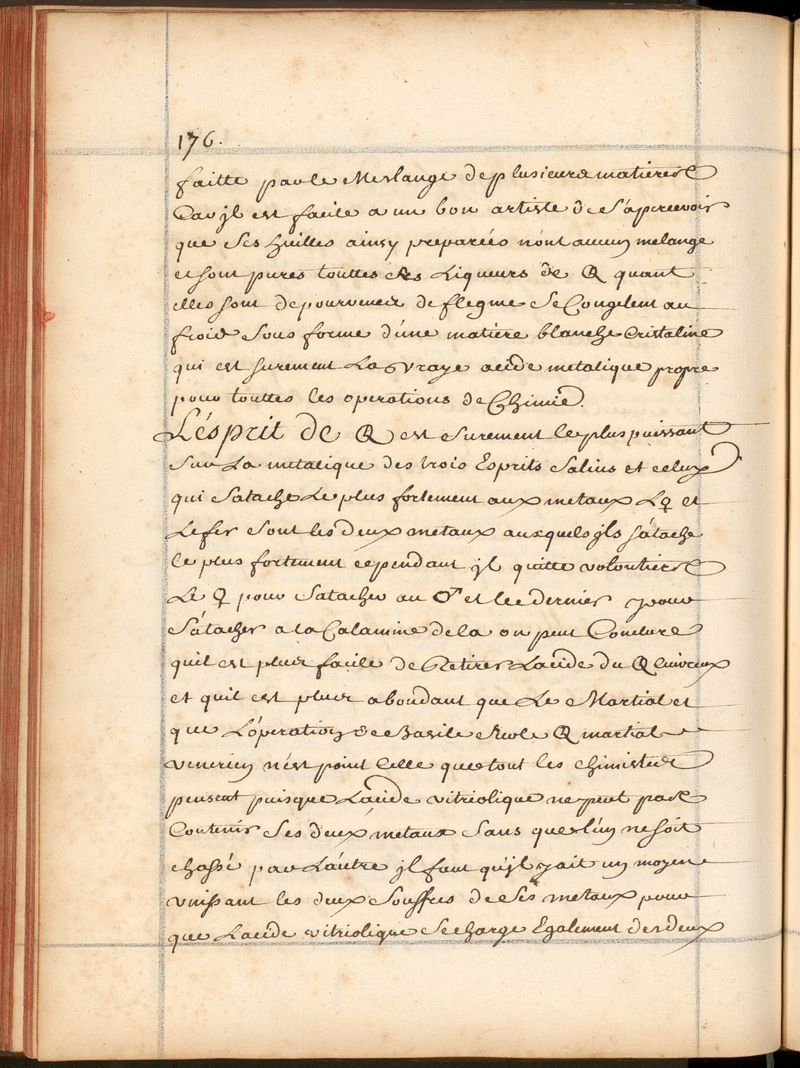 176.
faitte par le Meslange de plusieurs matieres
Car jl est facile a un bon artiste de s'apercevoir
que ses huilles ainsy preparées n'ont aucun melange
et sont pures touttes les Liqueurs de 🜖 quant
elles sont depourveues de flegme se Congelent au
froid sous forme d'une matiere blanche Cristaline
qui est surement La vraye acide metalique propre
pour touttes les operations de Chimie.
L'ésprit de 🜖 est surement le plus puissant
sur La metalique des trois Esprits Salins et celuy
qui s'atache Le plus fortement aux metaux L♀ et
Le fer sont les deux metaux ausquels jls s'átache
le plus fortement cependant jl quitte volontiers
Le ♀ pour s'atacher au ♂ et le dernier pour
s'átacher a la Calamine de la on peut Conclure
quil est plus facile de Retirer L'acide du 🜖 cuivreux
et quil est plus abondant que Le Martial et
que L'óperation de Basile sur le 🜖 martial
venerien n'est point celle que tout les chimistes
pensent puisque L'acide vitriolique ne peut pas
Contenir ses deux metaux sans que l'un ne soit
chassé par L'áutre jl faut qu'jl y ait un moyen
unissant les deux souffres de ses metaux pour
que L'acide vitriolique se charge Egalement des deux